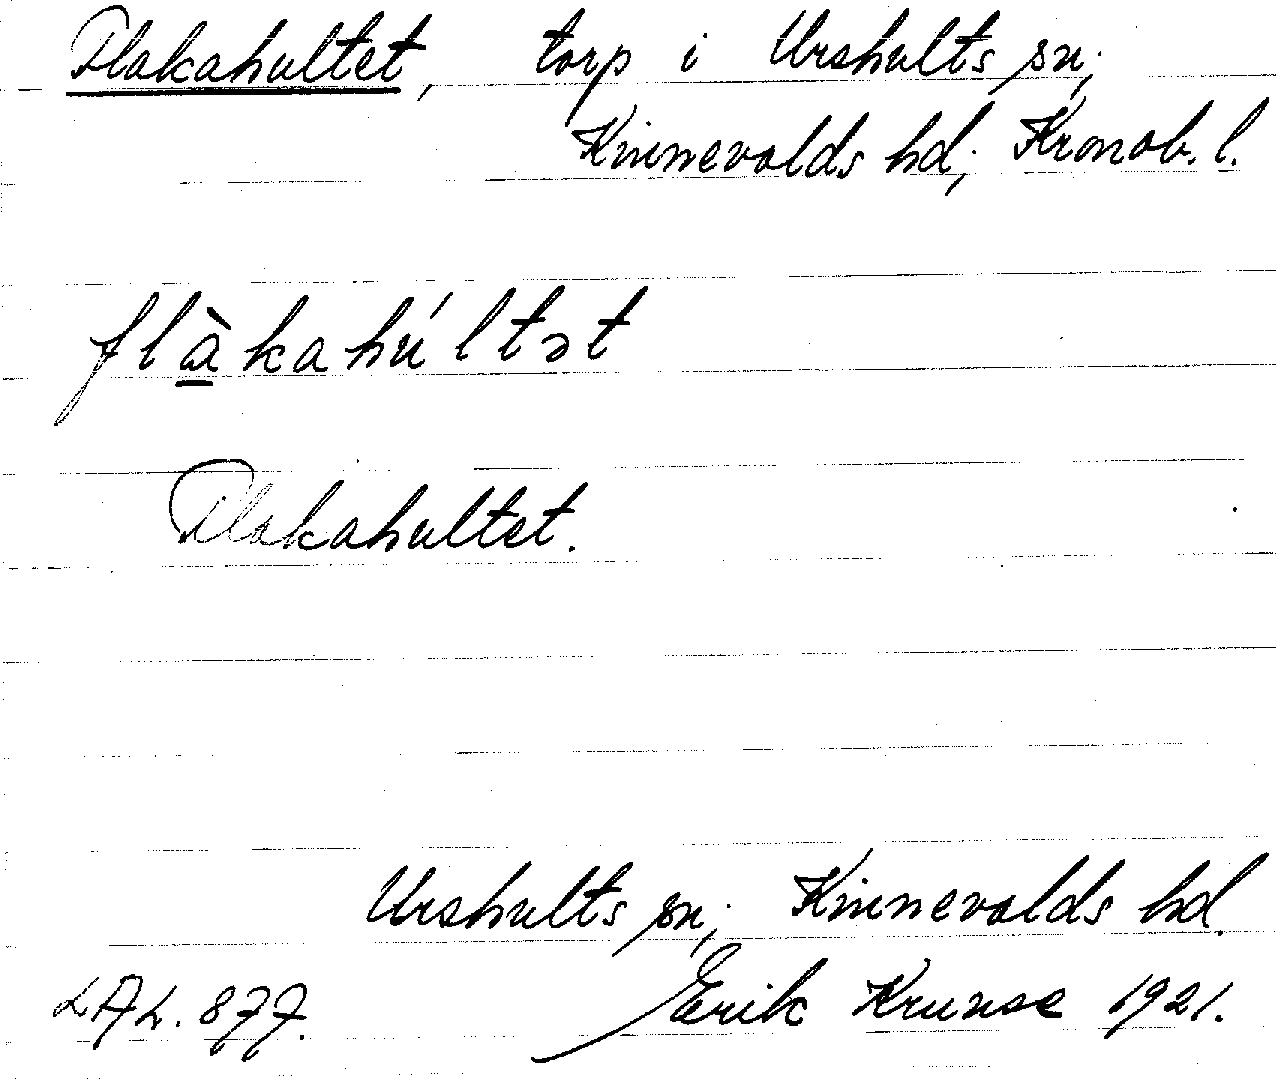 Flakahultet, torp i Urshults sn;
Kinnevalds hd; Kronob. l.
flàkahúltət
Flakahultet.
Urshults sn; Kinnevalds hd.
LAL. 877. Erik Krunse 1921.